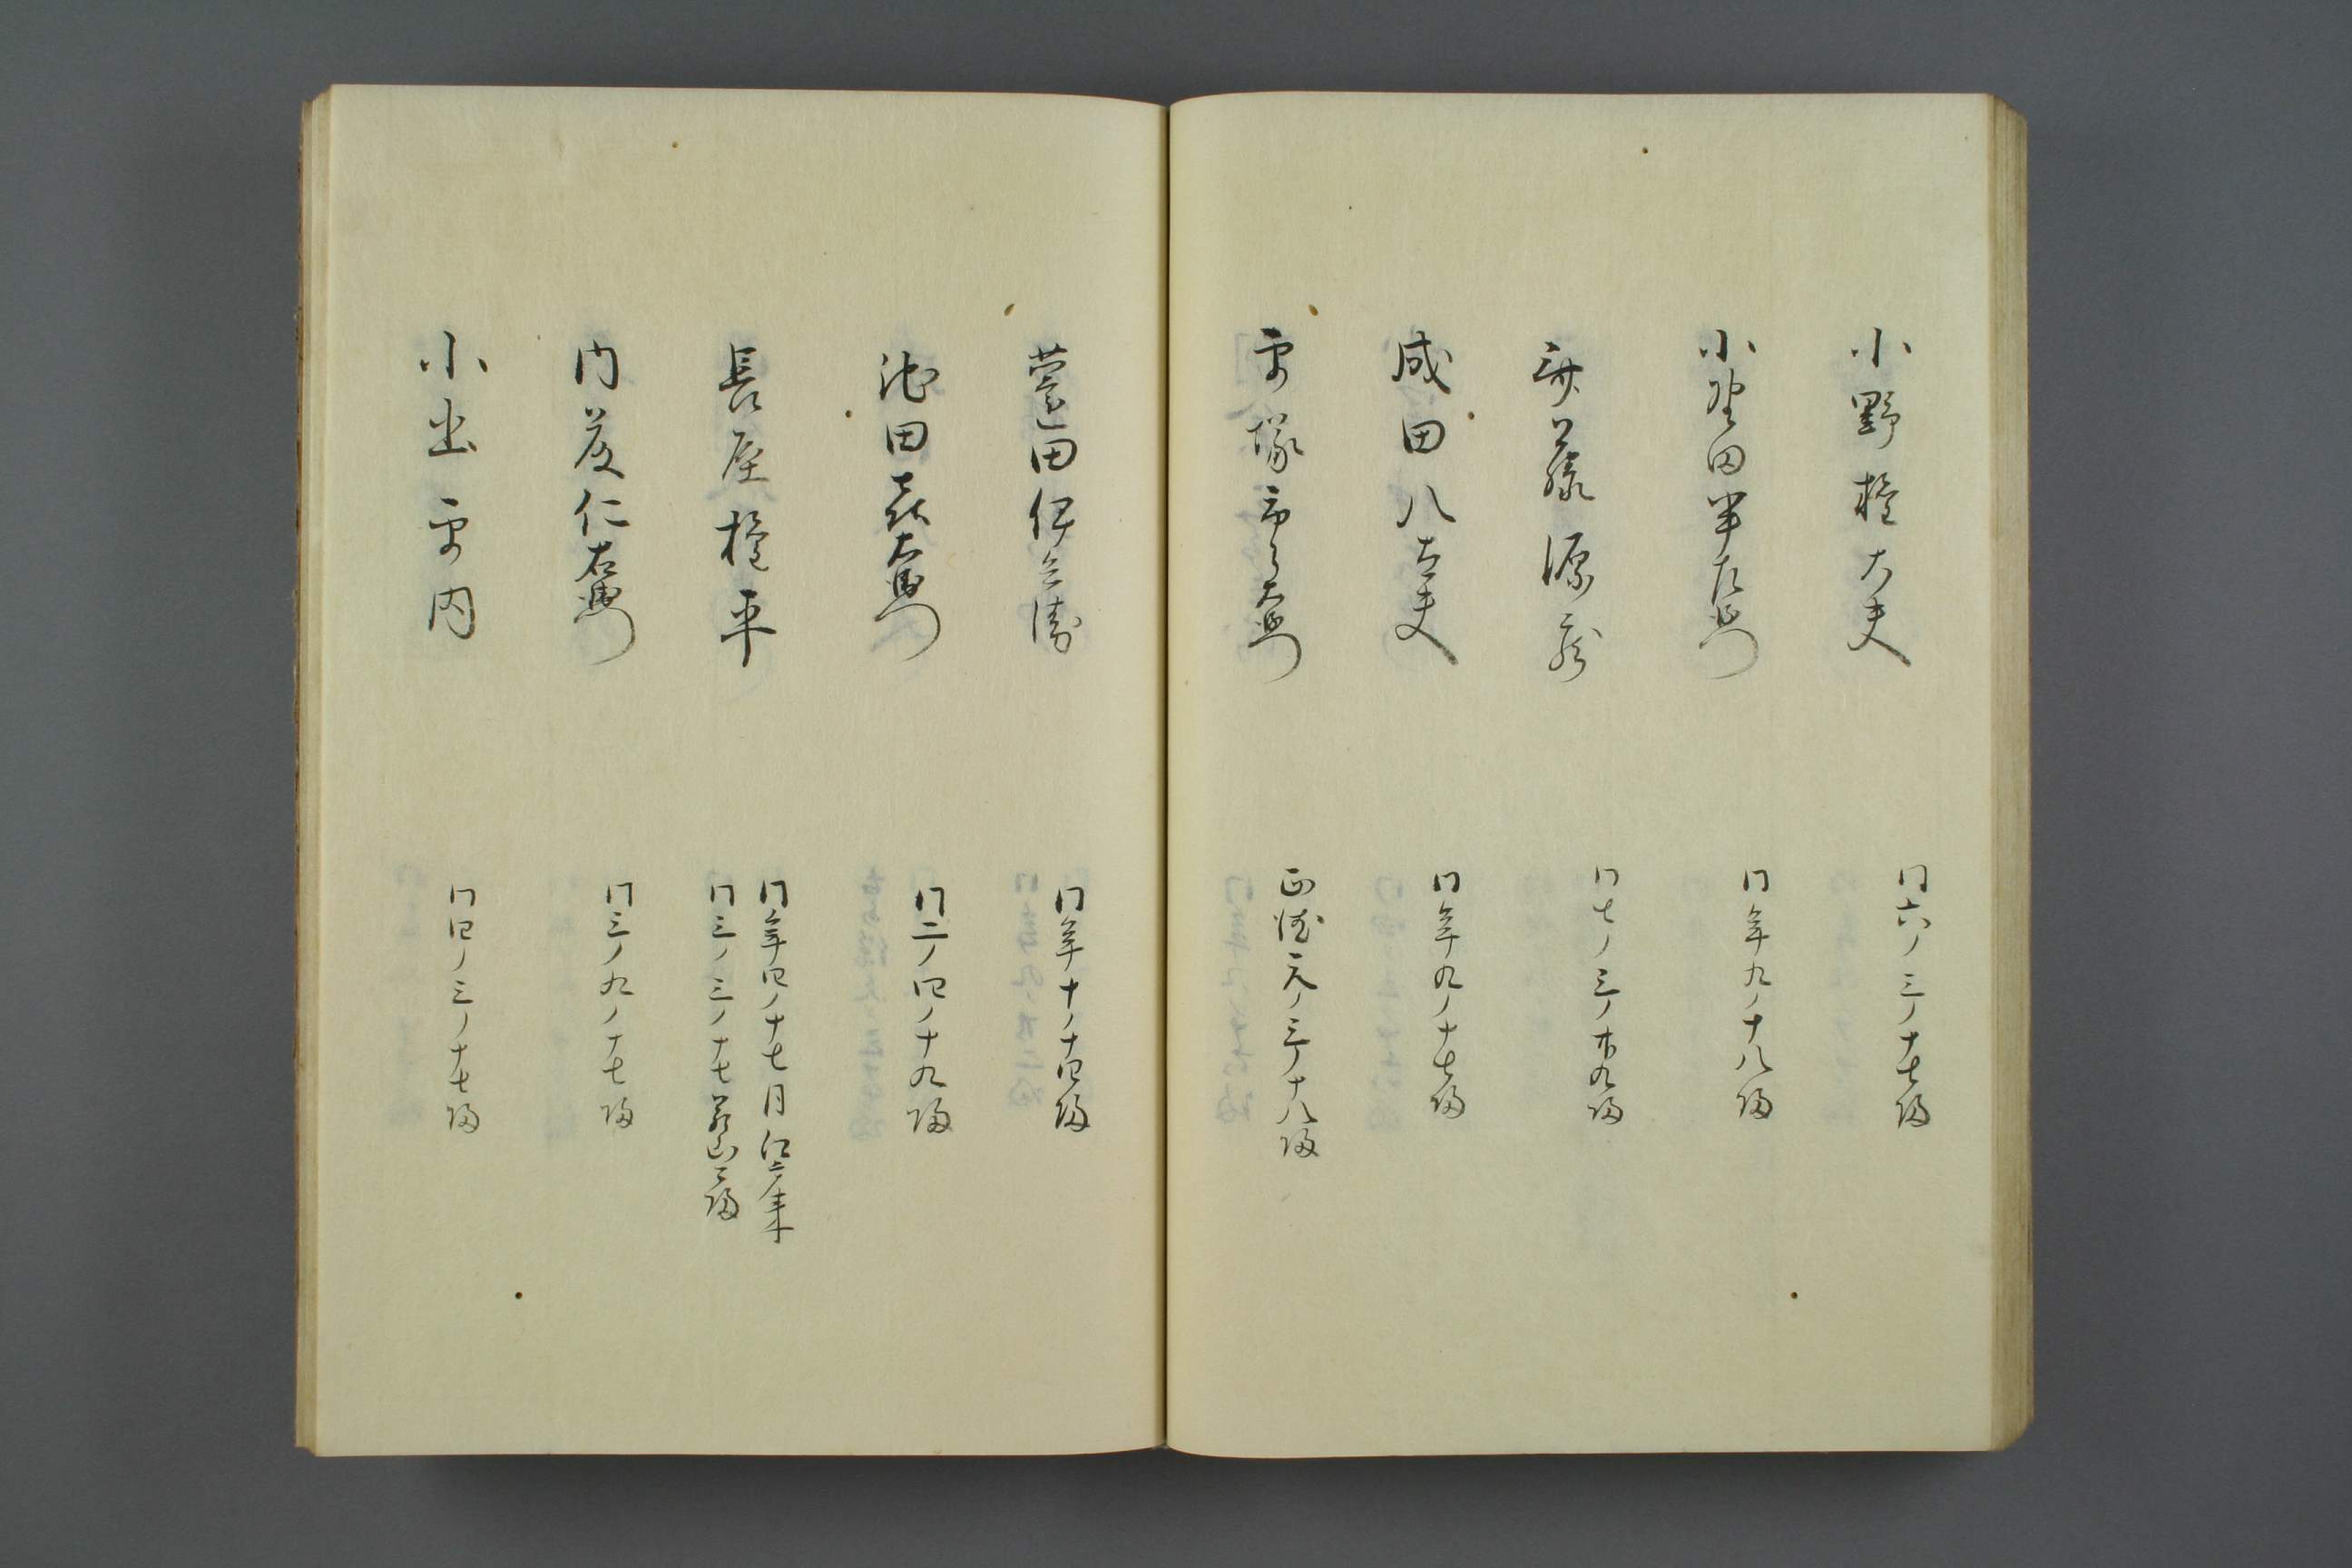 小野権大夫
同六ノ三ノ十七帰
小野田半左衛門
同年九ノ十八帰
斎藤源蔵
同七ノ三ノ廿九帰
成田八大夫
同年九ノ十七帰
平塚市郎右衛門
正徳元ノ三ノ十八帰
豊田伊兵衛
同年十ノ十四帰
池田喜右衛門
同二ノ四ノ十九帰
長屋権平
同年四ノ十七月江戸来
同三ノ三ノ十七帰
内藤仁右衛門
同三ノ九ノ十七帰
小出平内
同四ノ三ノ十七帰